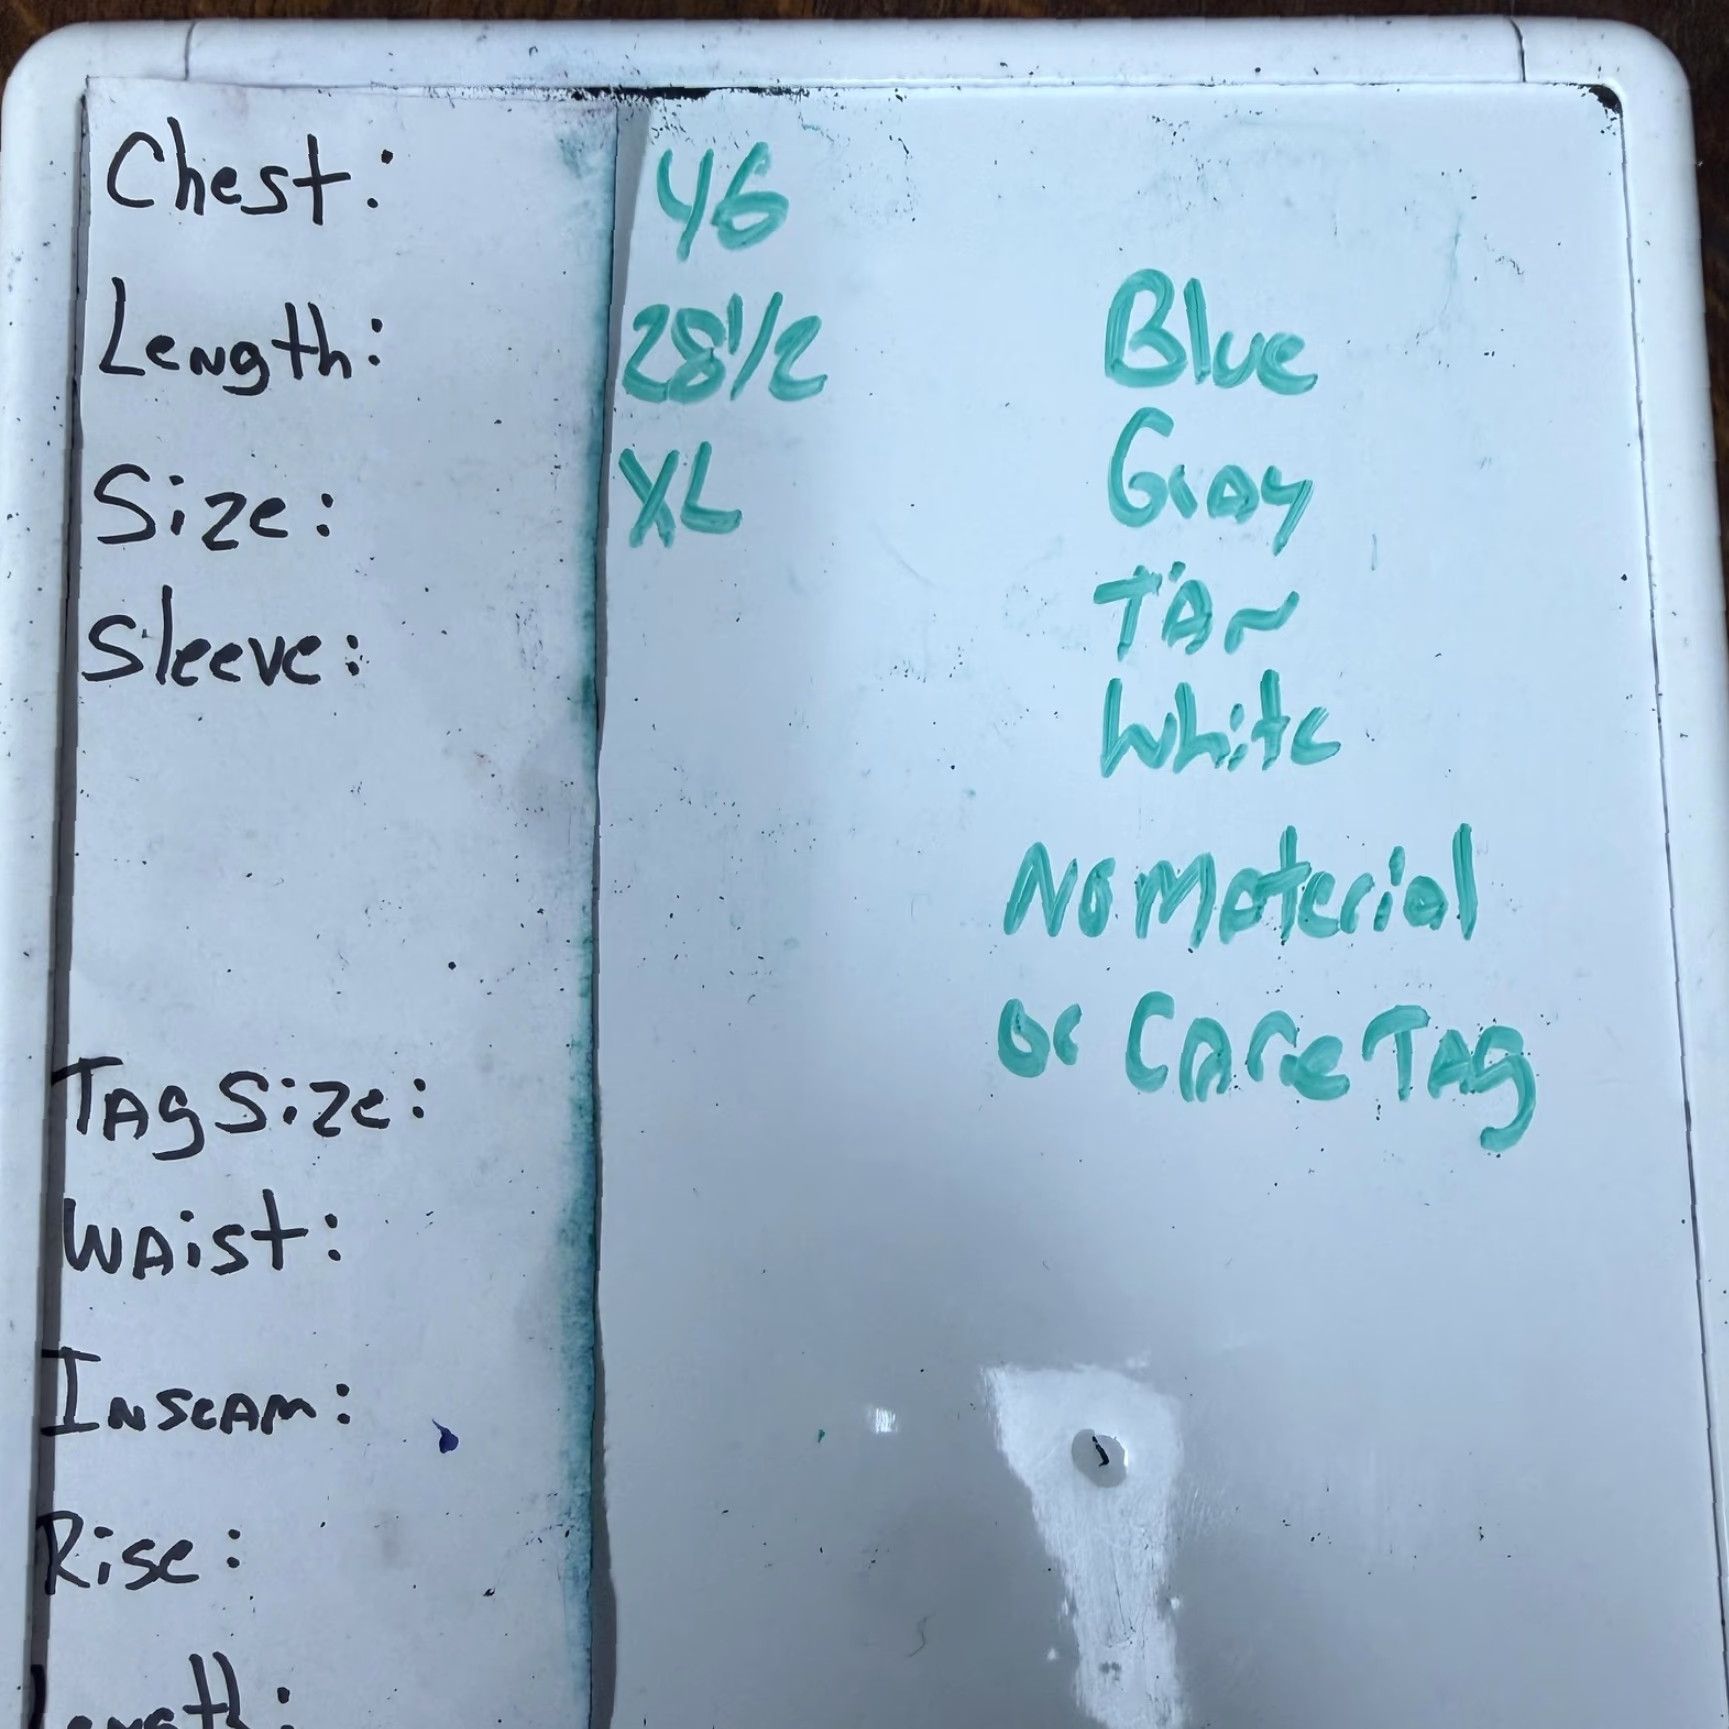 Chest: 46
Length: 28 1/2
Size: XL
Sleeve:
Blue
Gray
TAN
White
No Material
or CAre TAg
TAg Size:
WAist:
INseAm:
Rise:
Length: